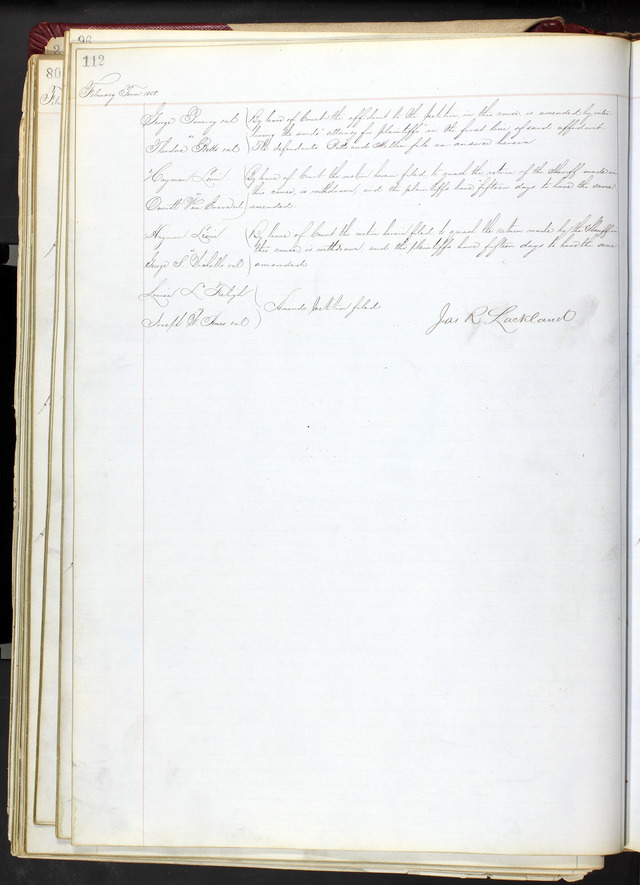 96
112
80
February Term 1859
George Penny et al
vs
Theodore Betts et al
By leave of Court the affidavit to the petition in this cause is amended by inter-
lining the words "attorney for plaintiffs" in the first line of said affidavit
The defendants Betts and file an answer herein
Hayman Levi
vs
Van et al
By leave of Court the motion herein filed to quash the return of the Sheriff made in
this cause, is withdrawn, and the plaintiffs have fifteen days to have the same
amended
Hyman Levi
vs
George S. et al
By leave of Court the motion herein filed to quash the return made by the Sheriff in
this cause is withdrawn, and the plaintiffs have fifteen days to have the same
amended
L.
Joseph W. Ames et al
Amended petition filed
Jas R. Lackland